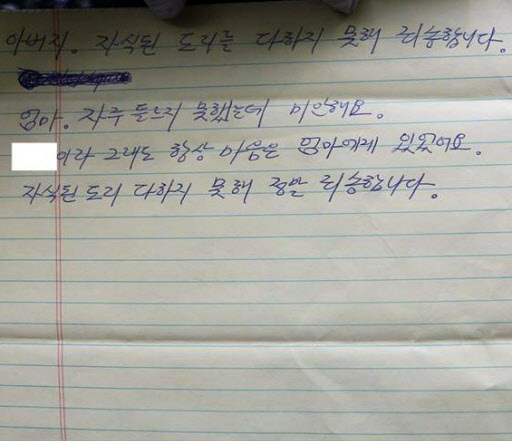 아버지. 자식된 도리를 다하지 못해 죄송합니다.
엄마. 자주 들르지 못했는데 미안해요.
이라 그래도 항상 마음은 엄마에게 있었어요.
자식된 도리 다하지 못해 정말 죄송합니다.